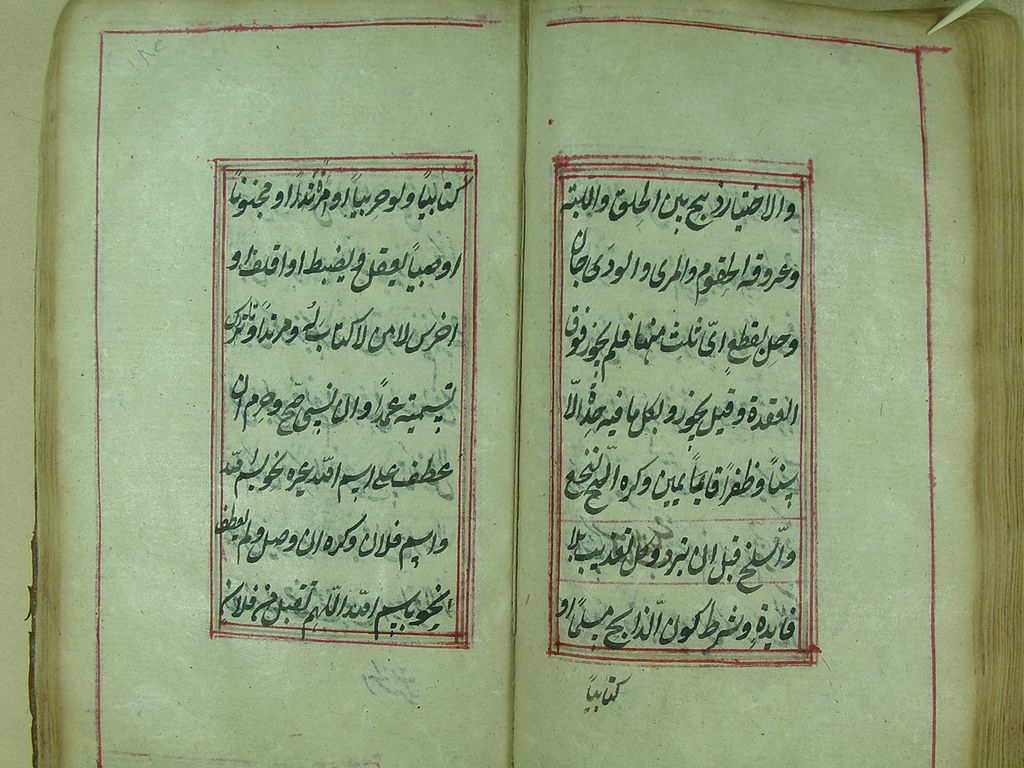 والاختيار ذبح بين الحلق واللبّة
وعروقه الحلقوم والمرى والودجان
وحل بقطع اىّ ثلث منها فلم يجز فوق
العقدة وقيل يجوز وبكل ما فيه حِدّةٌ الّا
سِنّاً وظفراً قايماً يمين وكره النخع
والسّلخ قبل ان تبرد وكل تعذيب بلا
فايدةٍ وشرط كون الذّابح مسلماً او
كتابياً
كتابيّاً ولو حربيّاً او امرْأةً او مجنوناً
او صبياً يعقل ويضبط او اقلف او
اخرس لا من لا كتاب له ومرتداً وتارك
تسمية عمداً وان نسى صّح وحرم ان
عطف على اسم الله غيره نحو باسم الله
واسم فلان وكره ان وصل ولم يعطف
نحو باسم الله اللّهم تقبل من فلان